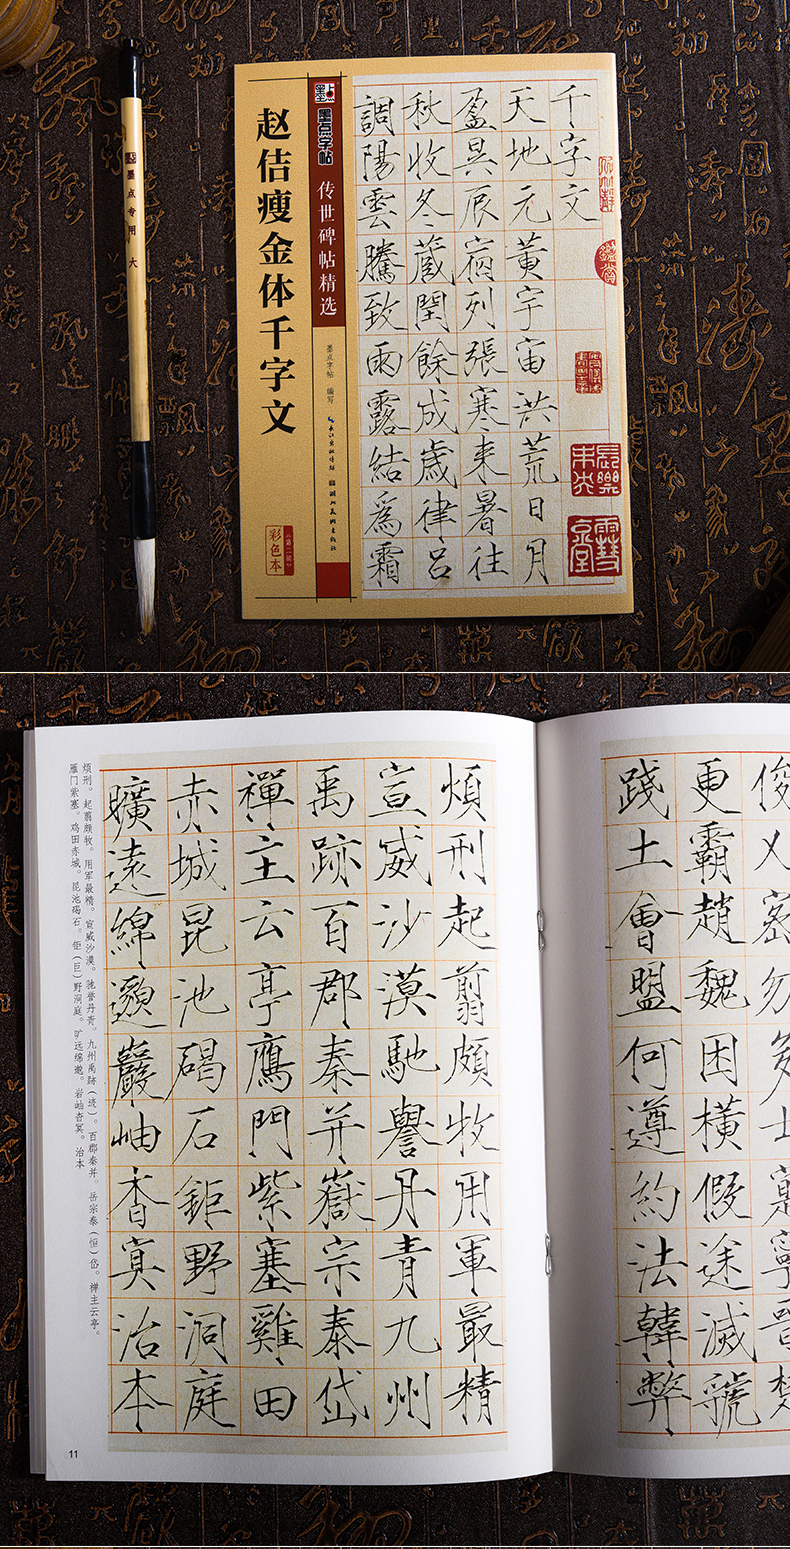 墨点专用 大
赵佶瘦金体千字文
墨点
墨点字帖
传世碑帖精选
墨点字� 编写
长江出版传媒 湖北美术出版社
彩色本
《第二辑》
千字文
天地元黄宇宙洪荒日月
盈昃辰宿列張寒来暑往
秋收冬蔵閏餘成歳律呂
調陽雲騰致雨露結為霜
俊乂密勿多士寔寧晉楚
更霸趙魏困橫假途滅虢
踐土會盟何遵約法韓弊
煩刑起翦頗牧用軍最精
宣威沙漠馳譽丹青九州
禹跡百郡秦并嶽宗泰岱
禪主云亭鴈門紫塞雞田
赤城昆池碣石鉅野洞庭
曠遠綿邈巖岫杳冥治本
烦刑。起翦颇牧。用军最精。宣威沙漠。驰誉丹青。九州禹跡（迹）。百郡秦并。岳宗泰（恒）岱。禅主云亭。
雁门紫塞。鸡田赤城。昆池碣石。钜（巨）野洞庭。旷远绵邈。岩岫杳冥。治本
11